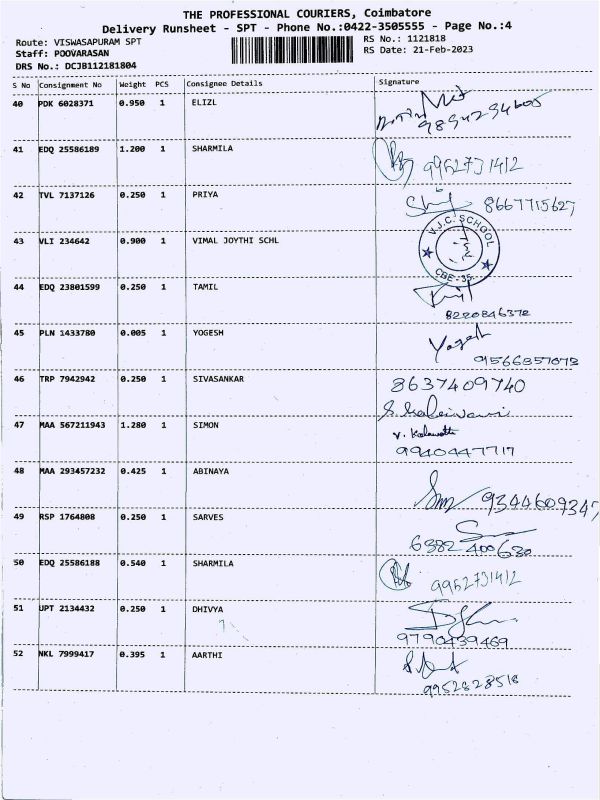 THE PROFESSIONAL COURIERS, Coimbatore
Delivery Runsheet - SPT - Phone No.:0422-3505555 - Page No.:4
Route: VISWASAPURAM SPT
RS No.: 1121818
Staff: POOVARASAN
RS Date: 21-Feb-2023
DRS No.: DCJB112181804
S No Consignment No Weight PCS Consignee Details Signature
40 PDK 6028371 0.950 1 ELIZL
9894294605
41 EDQ 25586189 1.200 1 SHARMILA
9952731412
42 TVL 7137126 0.250 1 PRIYA
8667715627
43 VLI 234642 0.900 1 VIMAL JOYTHI SCHL
V.J.C. SCHOOL
CBE-35
44 EDQ 23801599 0.250 1 TAMIL
8220846372
45 PLN 1433780 0.005 1 YOGESH
Yogesh
9156685707​8
46 TRP 7942942 0.250 1 SIVASANKAR
8637409740
47 MAA 567211943 1.280 1 SIMON
9940447717
48 MAA 293457232 0.425 1 ABINAYA
9344609347
49 RSP 1764808 0.250 1 SARVES
6382400630
50 EDQ 25586188 0.540 1 SHARMILA
9952731412
51 UPT 2134432 0.250 1 DHIVYA
9790439469
52 NKL 7999417 0.395 1 AARTHI
9952828518